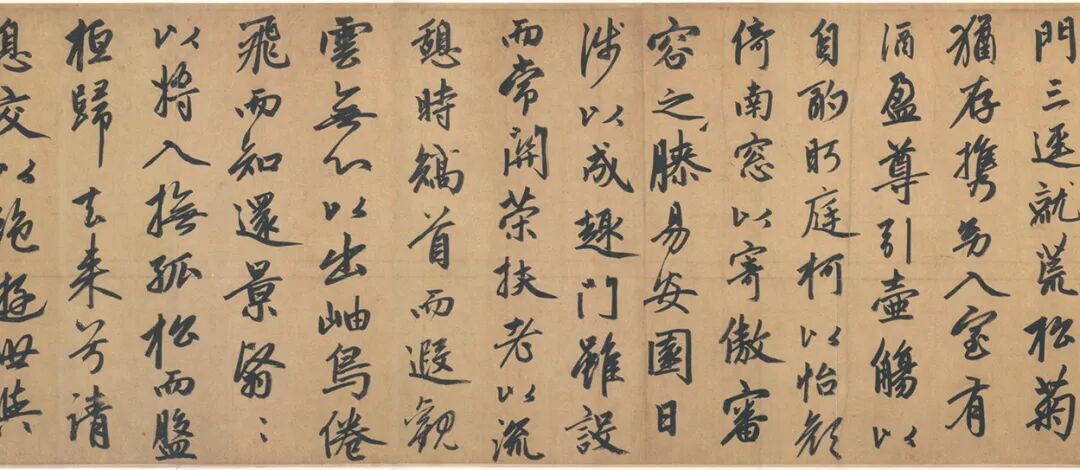 門三逕就荒松菊
猶存攜幼入室有
酒盈尊引壺觴以
自酌眄庭柯以怡顏
倚南窓以寄傲審
容之膝易安園日
涉以成趣門雖設
而常關策扶老以流
憩時矯首而遐觀
雲無心以出岫鳥倦
飛而知還景翳〻
以將入撫孤松而盤
桓歸去来兮請
息交以絕遊世與